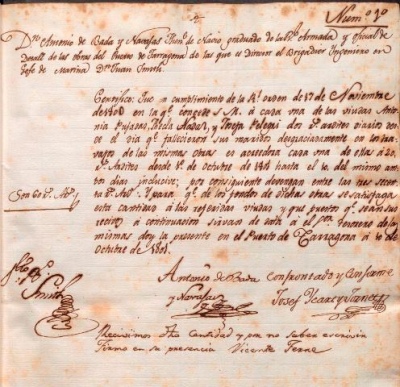 Num.º 3º
Dn. Antonio de Bada y Navajas Then.te de Navio graduado de la Rl. Armada y Oficial de
Detall de las obras del Puerto de Tarragona de las que es Director el Brigadier Ingeniero en
Gefe de Marina Dn. Juan Smith.
Certifico: Que a cumplimiento de la Rl. orden de 17 de Noviembre
de 1800 en la qe. concede S.M. á cada una de las viudas Anto-
nia Pujadas, y Josefa Pelegri dos Rs. ardites diarios des-
de el dia qe. fallecieron sus maridos desgraciadamente en los tra-
vajos de las mismas obras es acredora cada una de ellas á 20
Rs. Ardites desde 1º de Octubre de hasta el 10 del mismo am-
bos dias inclusive; por consiguiente devengan entre las tres sesen-
ta Rs. Ards. Y para qe. de los fondos de dicha obra se satisfaga
esta cantidad á las referidas viudas y que puesto qe. sea su
recivo á continuacion sirva de data á el Sor. Tesorero de la
mismas doy la presente en el Puerto de Tarragona á 10 de
Octubre de 1801.
Son 60 Rs. Ards.
Vto. Bno.
Smith
Antonio de Bada
y Navajas
Confrontado y Conforme
Josef Ycart y
Recivimos dha Cantidad y por no saber escrivir
firmo en su presencia Vicente Ferré